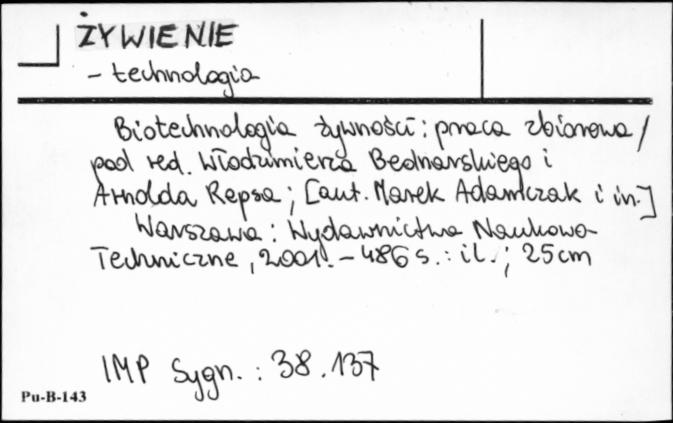 ŻYWIENIE
- technologia
Biotechnologia żywności: praca zbiorowa /
pod red. Włodzimierza Bednarskiego i
Arnolda Repsa ; [aut. Marek Adamczak i in.]
Warszawa : Wydawnictwa Naukowo-
Techniczne, 2001. - 486 s. : il. ; 25 cm
IMP Sygn. : 38.137
Pu-B-143